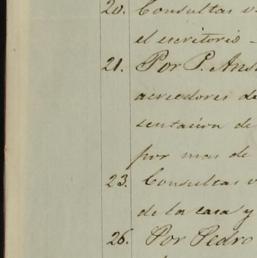 20. Consultas v
el escritorio -
21. Por P. Ans
acreedores de
sentacion de
por mas de
23. Consultas v
de la casa y
26. Por Pedro